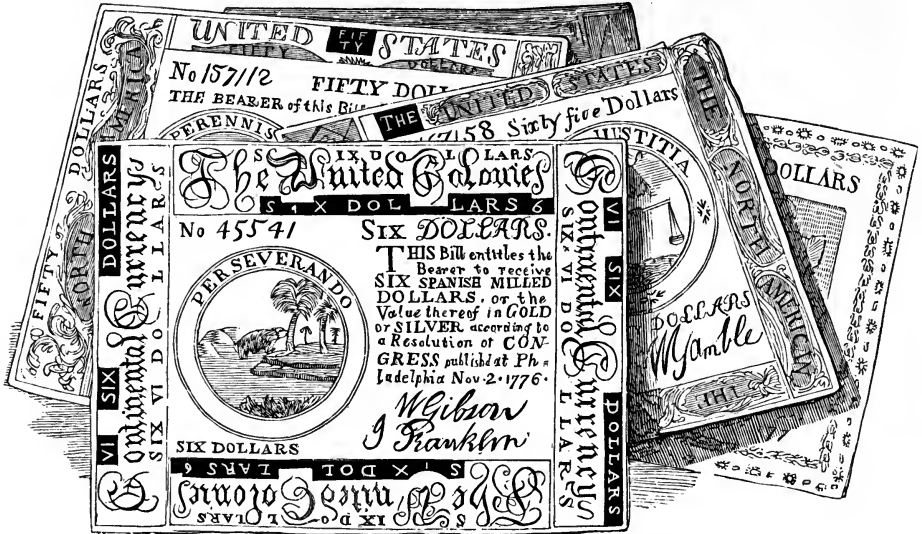 UNITED FIF TY STATES
FIFTY DOLLARS
No 157112 FIFTY DOLL
THE BEARER of this Bill
PERENNIS
FIFTY DOLLARS
NORTH AMERICA
THE UNITED STATES
67158 Sixty five Dollars
JUSTITIA
THE NORTH AMERICAN
DOLLARS
W Gamble
THE
DOLLARS
SIX DOLLARS
The United Colonies
SIX DOLLARS 6
No 45541 SIX DOLLARS.
THIS Bill entitles the
Bearer to receive
SIX SPANISH MILLED
DOLLARS, or the
Value thereof in GOLD
or SILVER according to
a Resolution of CON-
GRESS publishd at Ph=
ladelphia Nov-2-1776.
PERSEVERANDO
W Gibson
J Franklin
SIX DOLLARS
VI SIX DOLLARS
Continental Currency
SIX VI DOLLARS
VI SIX DOLLARS
Continental Currencys
SIX, VI DOLLARS
SIX DOLLARS 6
The United Colonies
SIX DOLLARS